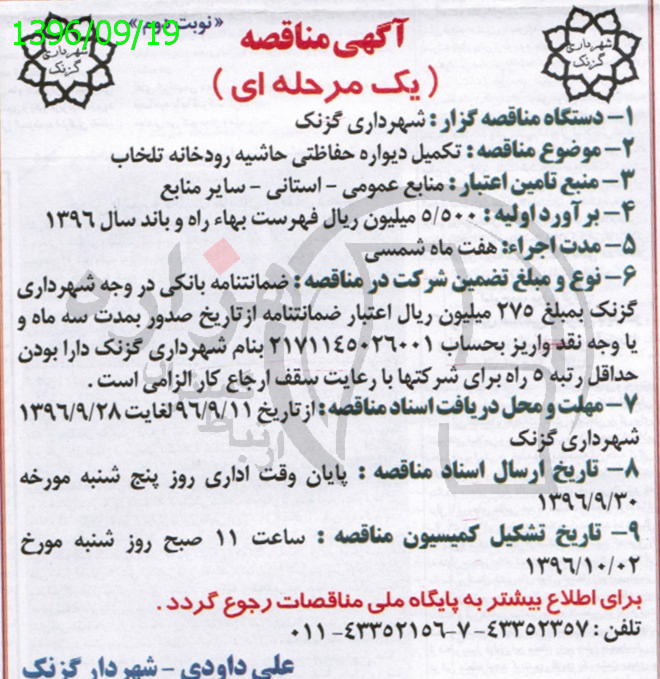 1396/09/19
«نوبت دوم»
آگهی مناقصه
شهرداری گزنک
شهرداری گزنک
( یک مرحله ای )
۱- دستگاه مناقصه گزار : شهرداری گزنک
۲- موضوع مناقصه : تکمیل دیواره حفاظتی حاشیه رودخانه تلخاب
۳- منبع تامین اعتبار : منابع عمومی - استانی - سایر منابع
۴- برآورد اولیه : ۵/۵۰۰ میلیون ریال فهرست بهاء راه و باند سال ۱۳۹۶
۵- مدت اجراء: هفت ماه شمسی
۶- نوع و مبلغ تضمین شرکت در مناقصه : ضمانتنامه بانکی در وجه شهرداری
گزنک بمبلغ ۲۷۵ میلیون ریال اعتبار ضمانتنامه از تاریخ صدور بمدت سه ماه و
یا وجه نقد واریز بحساب ۲۱۷۱۱۴۵۰۲۶۰۰۱ بنام شهرداری گزنک دارا بودن
حداقل رتبه ۵ راه برای شرکتها با رعایت سقف ارجاع کار الزامی است .
۷- مهلت و محل دریافت اسناد مناقصه : از تاریخ ۹۶/۹/۱۱ لغایت ۱۳۹۶/۹/۲۸
شهرداری گزنک
۸- تاریخ ارسال اسناد مناقصه : پایان وقت اداری روز پنج شنبه مورخه
۱۳۹۶/۹/۳۰
۹- تاریخ تشکیل کمیسیون مناقصه : ساعت ۱۱ صبح روز شنبه مورخ
۱۳۹۶/۱۰/۰۲
برای اطلاع بیشتر به پایگاه ملی مناقصات رجوع گردد .
تلفن : ۴۳۳۵۲۳۵۷-۷-۴۳۳۵۲۱۵۶-۰۱۱
علی داودی - شهردار گزنک
هزاره
ارتباط